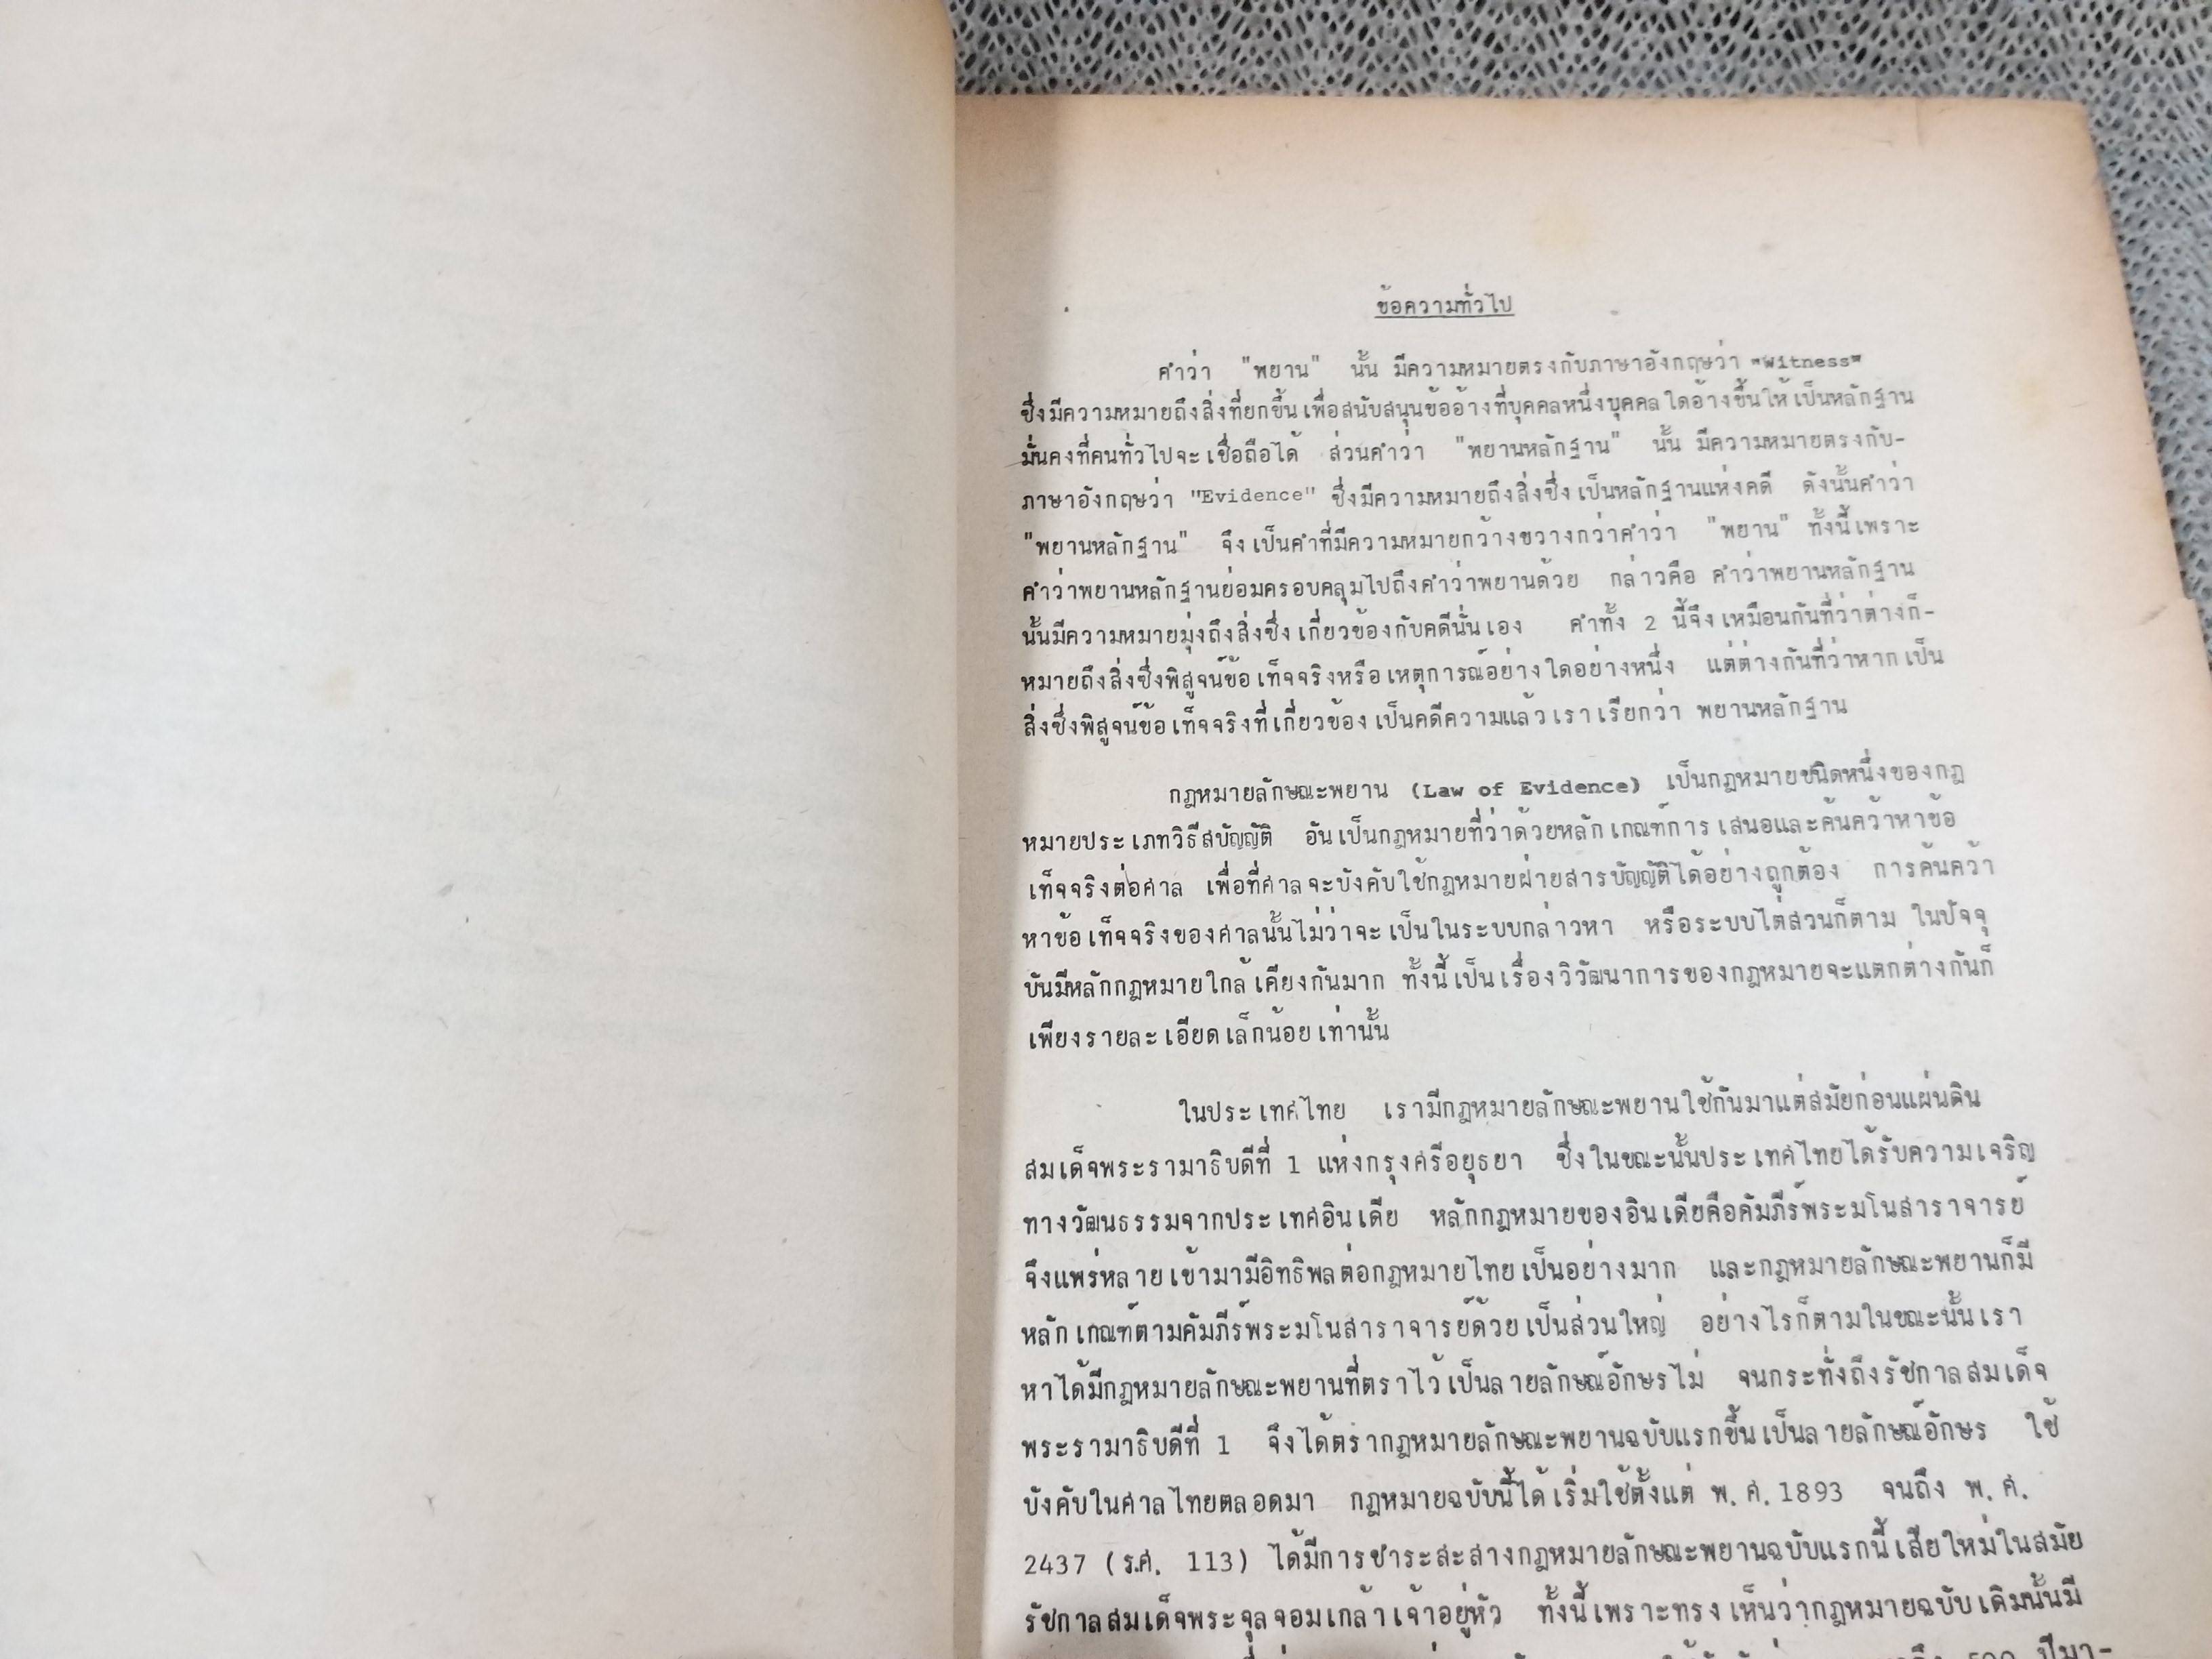 ข้อความทั่วไป
คำว่า "พยาน" นั้น มีความหมายตรงกับภาษาอังกฤษว่า "Witness"
ซึ่งมีความหมายถึงสิ่งที่ยกขึ้นเพื่อสนับสนุนข้ออ้างที่บุคคลหนึ่งบุคคลใดอ้างขึ้นให้เป็นหลักฐาน
มั่นคงที่คนทั่วไปจะเชื่อถือได้ ส่วนคำว่า "พยานหลักฐาน" นั้น มีความหมายตรงกับ-
ภาษาอังกฤษว่า "Evidence" ซึ่งมีความหมายถึงสิ่งซึ่งเป็นหลักฐานแห่งคดี ดังนั้นคำว่า
"พยานหลักฐาน" จึงเป็นคำที่มีความหมายกว้างขวางกว่าคำว่า "พยาน" ทั้งนี้เพราะ
คำว่าพยานหลักฐานย่อมครอบคลุมไปถึงคำว่าพยานด้วย กล่าวคือ คำว่าพยานหลักฐาน
นั้นมีความหมายมุ่งถึงสิ่งซึ่งเกี่ยวข้องกับคดีนั่นเอง คำทั้ง 2 นี้จึงเหมือนกันที่ว่าต่างก็-
หมายถึงสิ่งซึ่งพิสูจน์ข้อเท็จจริงหรือเหตุการณ์อย่างใดอย่างหนึ่ง แต่ต่างกันที่ว่าหากเป็น
สิ่งซึ่งพิสูจน์ข้อเท็จจริงที่เกี่ยวข้องเป็นคดีความแล้วเราเรียกว่า พยานหลักฐาน
กฎหมายลักษณะพยาน (Law of Evidence) เป็นกฎหมายชนิดหนึ่งของกฎ
หมายประเภทวิธีสบัญญัติ อันเป็นกฎหมายที่ว่าด้วยหลักเกณฑ์การเสนอและค้นคว้าหาข้อ
เท็จจริงต่อศาล เพื่อที่ศาลจะบังคับใช้กฎหมายฝ่ายสารบัญญัติได้อย่างถูกต้อง การค้นคว้า
หาข้อเท็จจริงของศาลนั้นไม่ว่าจะเป็นในระบบกล่าวหา หรือระบบไต่สวนก็ตาม ในปัจจุ
บันมีหลักกฎหมายใกล้เคียงกันมาก ทั้งนี้เป็นเรื่องวิวัฒนาการของกฎหมายจะแตกต่างกันก็
เพียงรายละเอียดเล็กน้อยเท่านั้น
ในประเทศไทย เรามีกฎหมายลักษณะพยานใช้กันมาแต่สมัยก่อนแผ่นดิน
สมเด็จพระรามาธิบดีที่ 1 แห่งกรุงศรีอยุธยา ซึ่งในขณะนั้นประเทศไทยได้รับความเจริญ
ทางวัฒนธรรมจากประเทศอินเดีย หลักกฎหมายของอินเดียคือคัมภีร์พระมโนสาราจารย์
จึงแพร่หลายเข้ามามีอิทธิพลต่อกฎหมายไทยเป็นอย่างมาก และกฎหมายลักษณะพยานก็มี
หลักเกณฑ์ตามคัมภีร์พระมโนสาราจารย์ด้วยเป็นส่วนใหญ่ อย่างไรก็ตามในขณะนั้นเรา
หาได้มีกฎหมายลักษณะพยานที่ตราไว้เป็นลายลักษณ์อักษรไม่ จนกระทั่งถึงรัชกาลสมเด็จ
พระรามาธิบดีที่ 1 จึงได้ตรากฎหมายลักษณะพยานฉบับแรกขึ้นเป็นลายลักษณ์อักษร ใช้
บังคับในศาลไทยตลอดมา กฎหมายฉบับนี้ได้เริ่มใช้ตั้งแต่ พ.ศ.1893 จนถึง พ.ศ.
2437 (ร.ศ. 113) ได้มีการชำระสะสางกฎหมายลักษณะพยานฉบับแรกนี้เสียใหม่ในสมัย
รัชกาลสมเด็จพระจุลจอมเกล้าเจ้าอยู่หัว ทั้งนี้เพราะทรงเห็นว่ากฎหมายฉบับเดิมนั้นมี